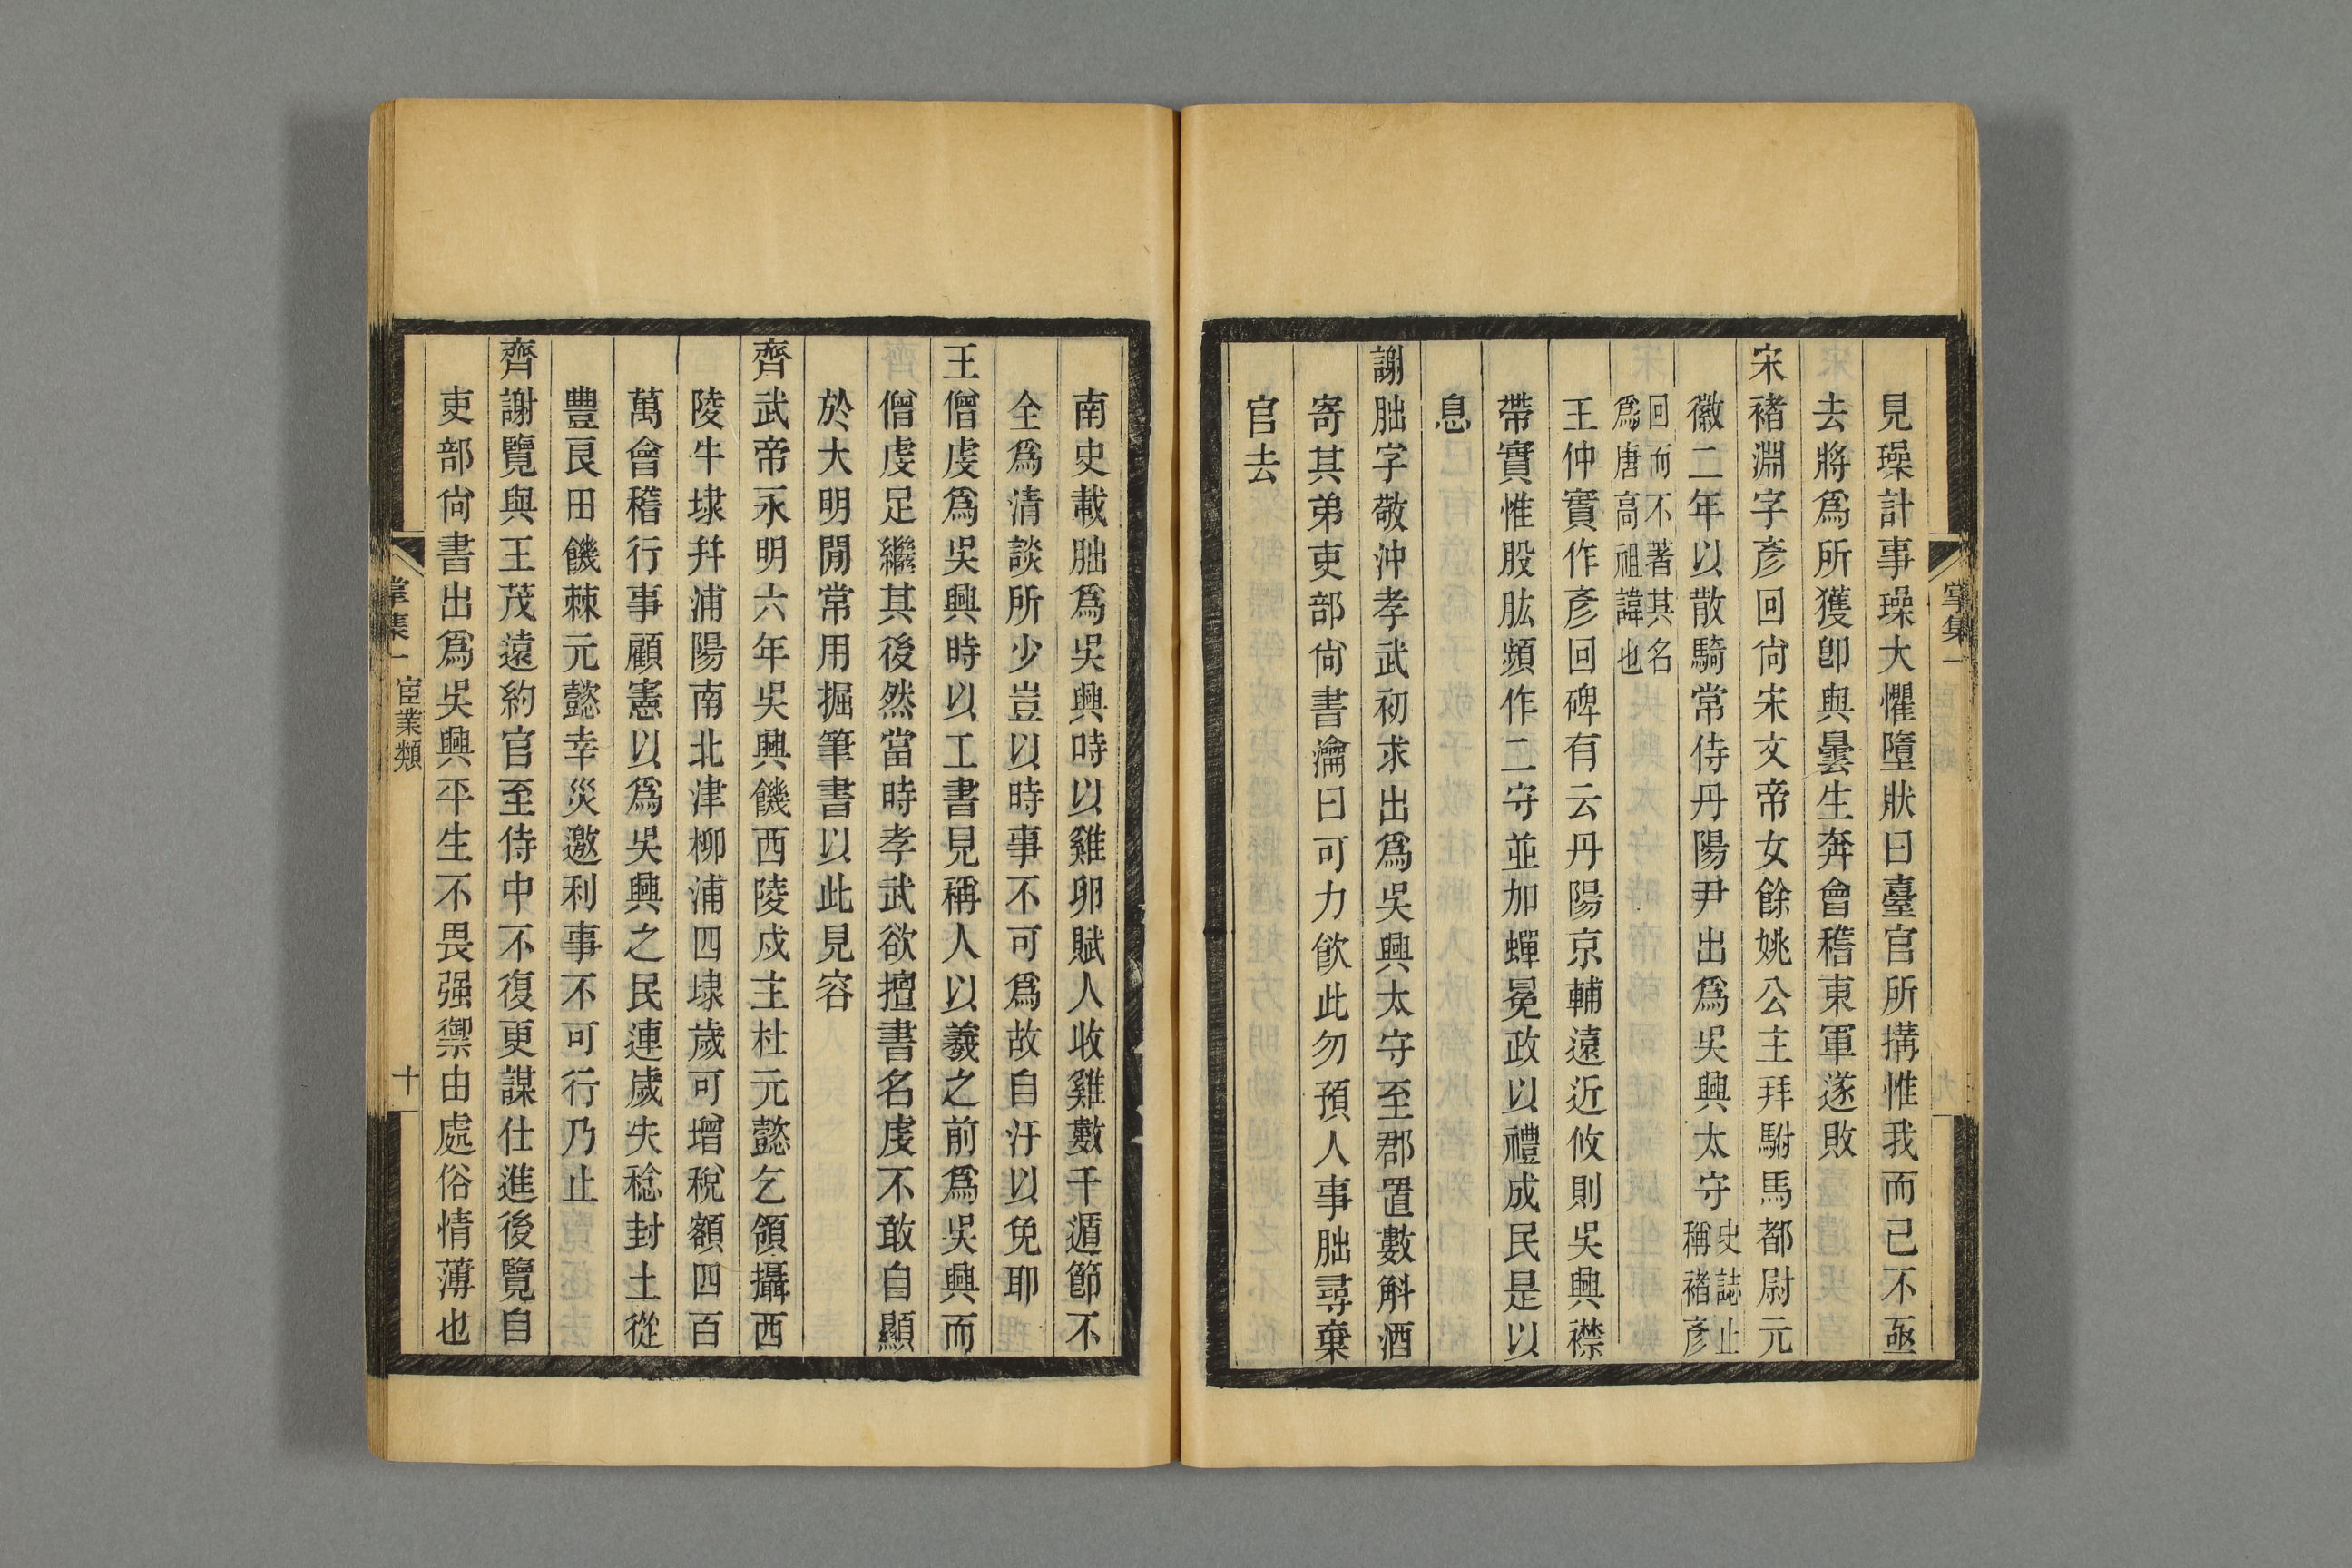 見璪計事璪大懼墮狀曰臺官所搆惟我而已不亟
去將爲所獲卽與曇生奔會稽東軍遂敗
宋褚淵字彥回尙宋文帝女餘姚公主拜駙馬都尉元
徽二年以散騎常侍丹陽尹出爲吳興太守史誌止稱褚彥
回而不著其名爲唐高祖諱也
王仲寶作彥回碑有云丹陽京輔遠近攸則吳興襟
帶實惟股肱頻作二守並加蟬冕政以禮成民是以
息
謝朏字敬沖孝武初求出爲吳興太守至郡置數斛酒
寄其弟吏部尙書瀹曰可力飮此勿預人事朏尋棄
官去
南史載朏爲吳興時以雞卵賦人收雞數千遁節不
全爲清談所少豈以時事不可爲故自汙以免耶
王僧虔爲吳興時以工書見稱人以羲之前爲吳興而
僧虔足繼其後然當時孝武欲擅書名虔不敢自顯
於大明閒常用掘筆書以此見容
齊武帝永明六年吳興饑西陵戍主杜元懿乞領攝西
陵牛埭幷浦陽南北津柳浦四埭歲可增稅額四百
萬會稽行事顧憲以爲吳興之民連歲失稔封土從
豐良田饑棘元懿幸災邀利事不可行乃止
齊謝覽與王茂遠約官至侍中不復更謀仕進後覽自
吏部尙書出爲吳興平生不畏强禦由處俗情薄也
掌集一 宦業類 十